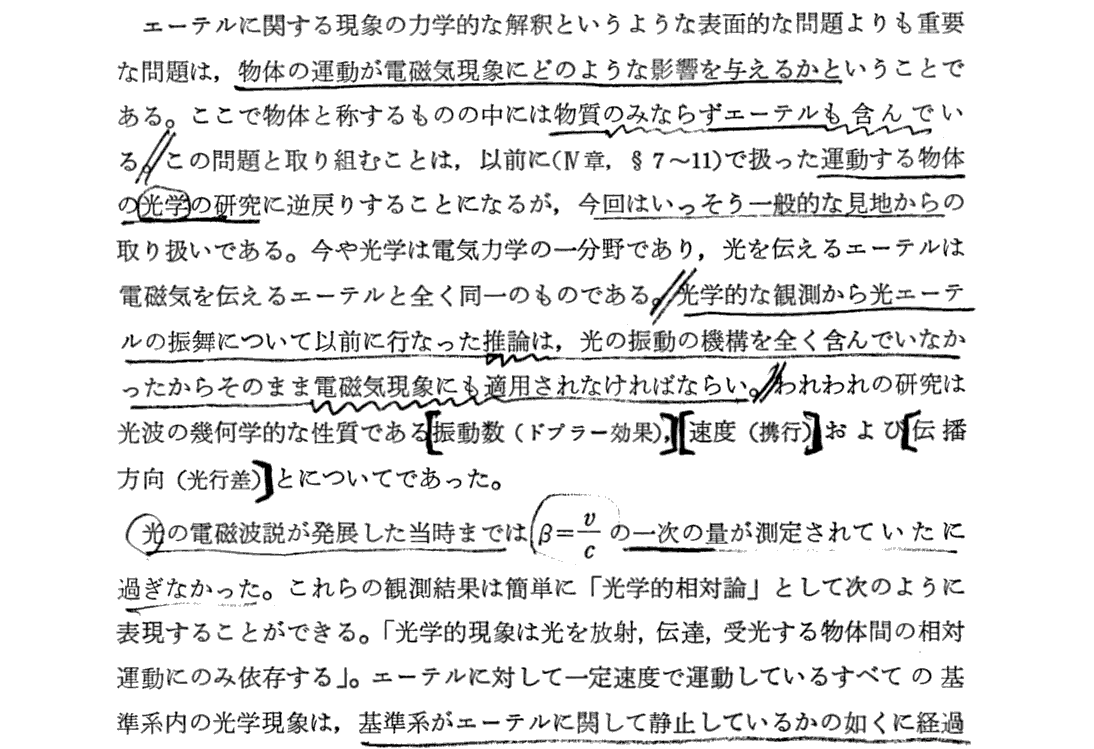 エーテルに関する現象の力学的な解釈というような表面的な問題よりも重要
な問題は，物体の運動が電磁気現象にどのような影響を与えるかということで
ある。ここで物体と称するものの中には物質のみならずエーテルも含んでい
る。この問題と取り組むことは，以前に(Ⅳ章，§7～11)で扱った運動する物体
の光学の研究に逆戻りすることになるが，今回はいっそう一般的な見地からの
取り扱いである。今や光学は電気力学の一分野であり，光を伝えるエーテルは
電磁気を伝えるエーテルと全く同一のものである。光学的な観測から光エーテ
ルの振舞について以前に行なった推論は，光の振動の機構を全く含んでいなか
ったからそのまま電磁気現象にも適用されなければならい。われわれの研究は
光波の幾何学的な性質である振動数（ドプラー効果），速度（携行）および伝播
方向（光行差）とについてであった。
光の電磁波説が発展した当時まではβ=v/cの一次の量が測定されていたに
過ぎなかった。これらの観測結果は簡単に「光学的相対論」として次のように
表現することができる。「光学的現象は光を放射，伝達，受光する物体間の相対
運動にのみ依存する」。エーテルに対して一定速度で運動しているすべての基
準系内の光学現象は，基準系がエーテルに関して静止しているかの如くに経過